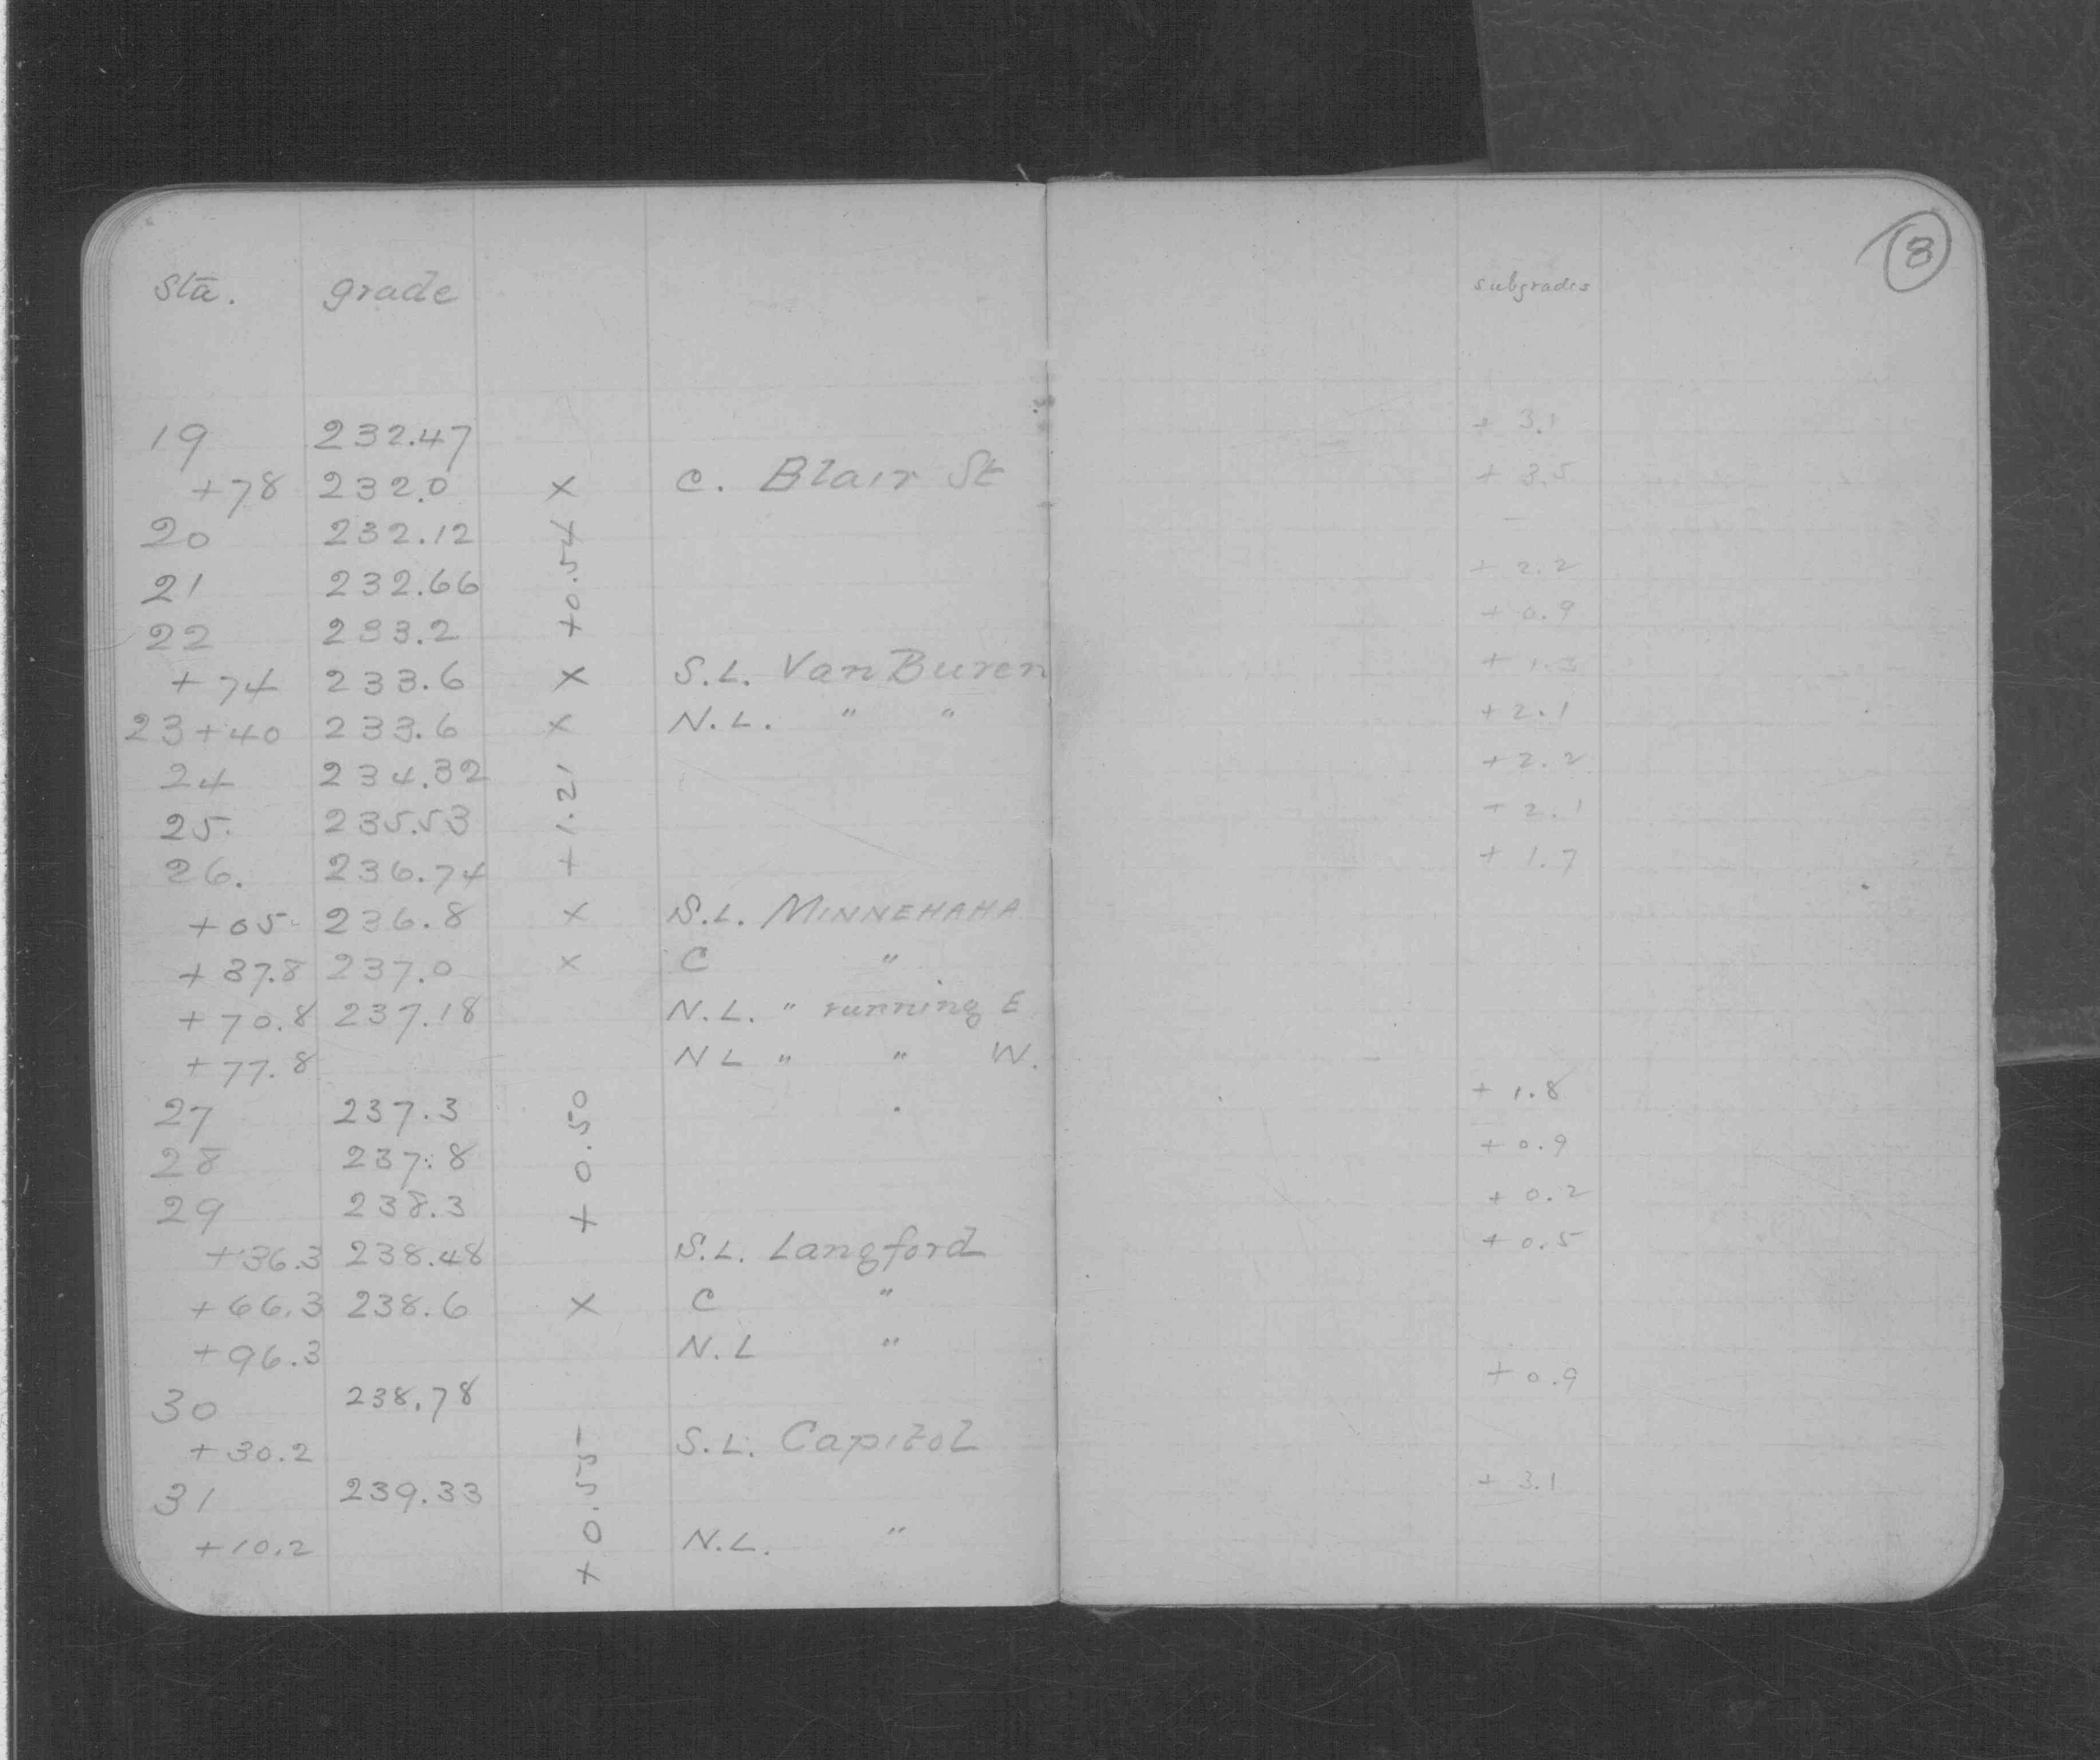 sta. grade
19 232.47
+78 232.0 x C. Blair St
20 232.12
21 232.66 +0.54
22 233.2
+74 233.6 x S.L. Van Buren
23+40 233.6 x N.L. " "
24 234.32
25. 235.53 +1.21
26. 236.74
+05 236.8 x S.L. MINNEHAHA
+37.8 237.0 x C "
+70.8 237.18 N.L. " running E
+77.8 NL " " W.
27 237.3
28 237.8 +0.50
29 238.3
+36.3 238.48 S.L. Langford
+66.3 238.6 x C "
+96.3 N.L "
30 238.78
+30.2 S.L. Capitol
31 239.33 +0.55
+10.2 N.L. "
8
subgrades
+ 3.1
+ 3.5
-
+ 2.2
+ 0.9
+ 1.3
+2.1
+2.2
+2.1
+ 1.7
+ 1.8
+0.9
+ 0.2
+ 0.5
+0.9
+ 3.1